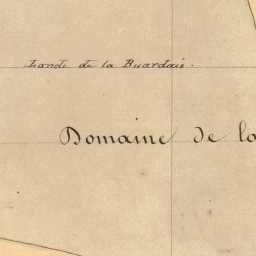 Lande de la Buardais.
Domaine de la